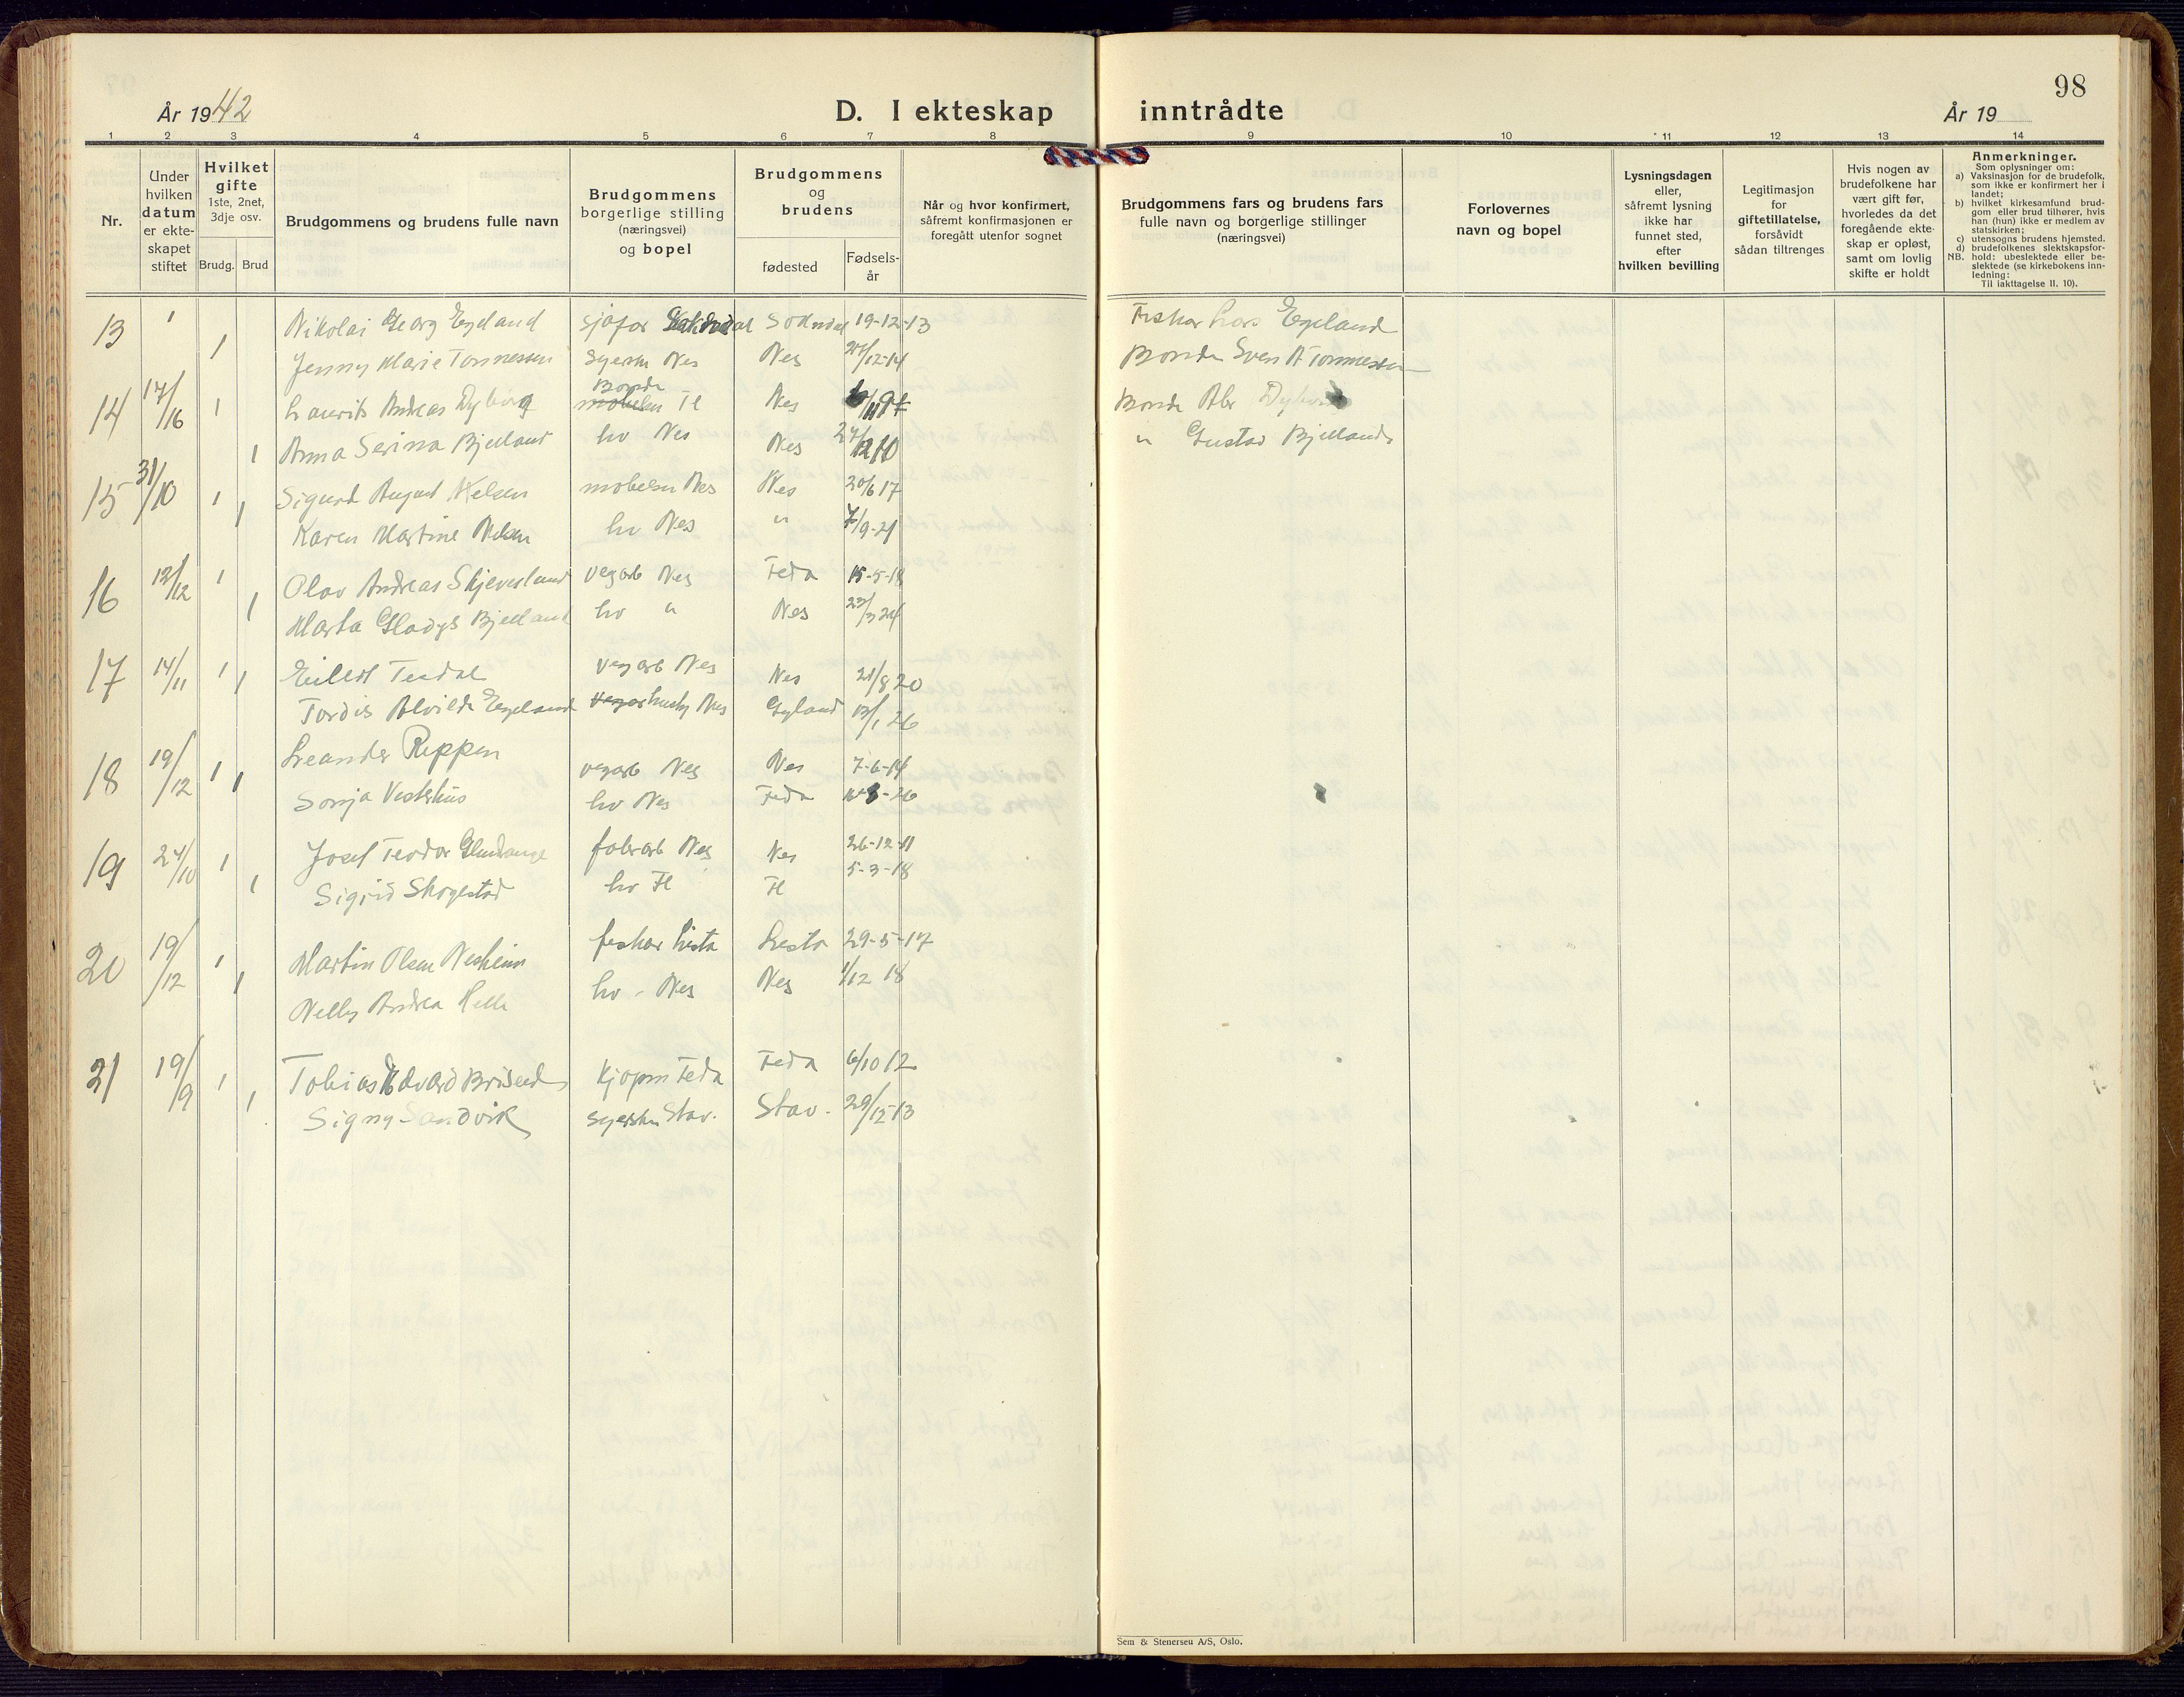 År 1942
D. I ekteskap inntrådte
98
År 19
1 2 3 4 5 6 7 8 9 10 11 12 13 14
Nr.
Under hvilken datum er ekte-skapet stiftet
Hvilket gifte 1ste, 2net, 3dje osv.
Brudg. Brud
Brudgommens og brudens fulle navn
Brudgommens borgerlige stilling (næringsvei) og bopel
Brudgommens og brudens
fødested
Fødsels-år
Når og hvor konfirmert, såfremt konfirmasjonen er foregått utenfor sognet
Brudgommens fars og brudens fars fulle navn og borgerlige stillinger (næringsvei)
Forlovernes navn og bopel
Lysningsdagen eller, såfremt lysning ikke har funnet sted, efter hvilken bevilling
Legitimasjon for giftetillatelse, forsåvidt sådan tiltrenges
Hvis nogen av brudefolkene har vært gift før, hvorledes da det foregående ekte-skap er opløst, samt om lovlig skifte er holdt
Anmerkninger.
Som oplysninger om:
a) Vaksinasjon for de brudefolk, som ikke er konfirmert her i landet;
b) hvilket kirkesamfund brud-gom eller brud tilhører, hvis han (hun) ikke er medlem av statskirken;
c) utensogns brudens hjemsted.
d) brudefolkenes slektskapsfor-hold: ubeslektede eller be-slektede (se kirkebokens inn-ledning:
NB. Til iakttagelse II. 10).
13 1 Nikolai Georg Egeland sjåfør Sokndal 19-12-13 Fisker Lars Egeland
1 Jenny Marie Tønnessen syerske Nes Nes /12-14 Bonde Sven A Tønnessen
Bonde
14 17/16 1 Laurits Andreas Dyborg Fl Nes Bonde
1 Anna Serina Bjelland hv Nes Nes 24/12 10 " Gustav Bjelland
15 31/10 1 Sigurd August Nelsen møbelsn Nes Nes 20/6 17
1 Karen Martine Nilsen hv Nes " 7/9-21
16 12/12 1 Olav Andreas Skjevesland vegarb Nes Feda 15-5-18
1 Marta Gladys Bjelland hv " Nes 23/3 24
17 14/11 1 1 Eilert Tesdal vegarb Nes Nes 21/8 20
Tordis Alvilde Egeland Nes Gyland 13/1 26
18 19/12 1 1 Leander Reppen vegarb Nes Nes 7-6-14
Sonja Vesterhus hv Nes Feda -26
19 24/10 1 Josef Teodor fabrarb Nes Nes 26-12-11
1 Sigrid Skogestad hv Fl Fl 5-3-18
20 19/12 1 Martin Olsen Nesheim fisker Lista Lista 29-5-17
1 Nelly Andrea Helle hv - Nes Nes 1/12 18
21 19/9 1 Tobias Edvard Briseid Kjøpm Feda Feda 6/10 12
1 Signy Sandvik syerske Stav. Stav. 29/12-13
Sem & Stenersen A/S, Oslo.